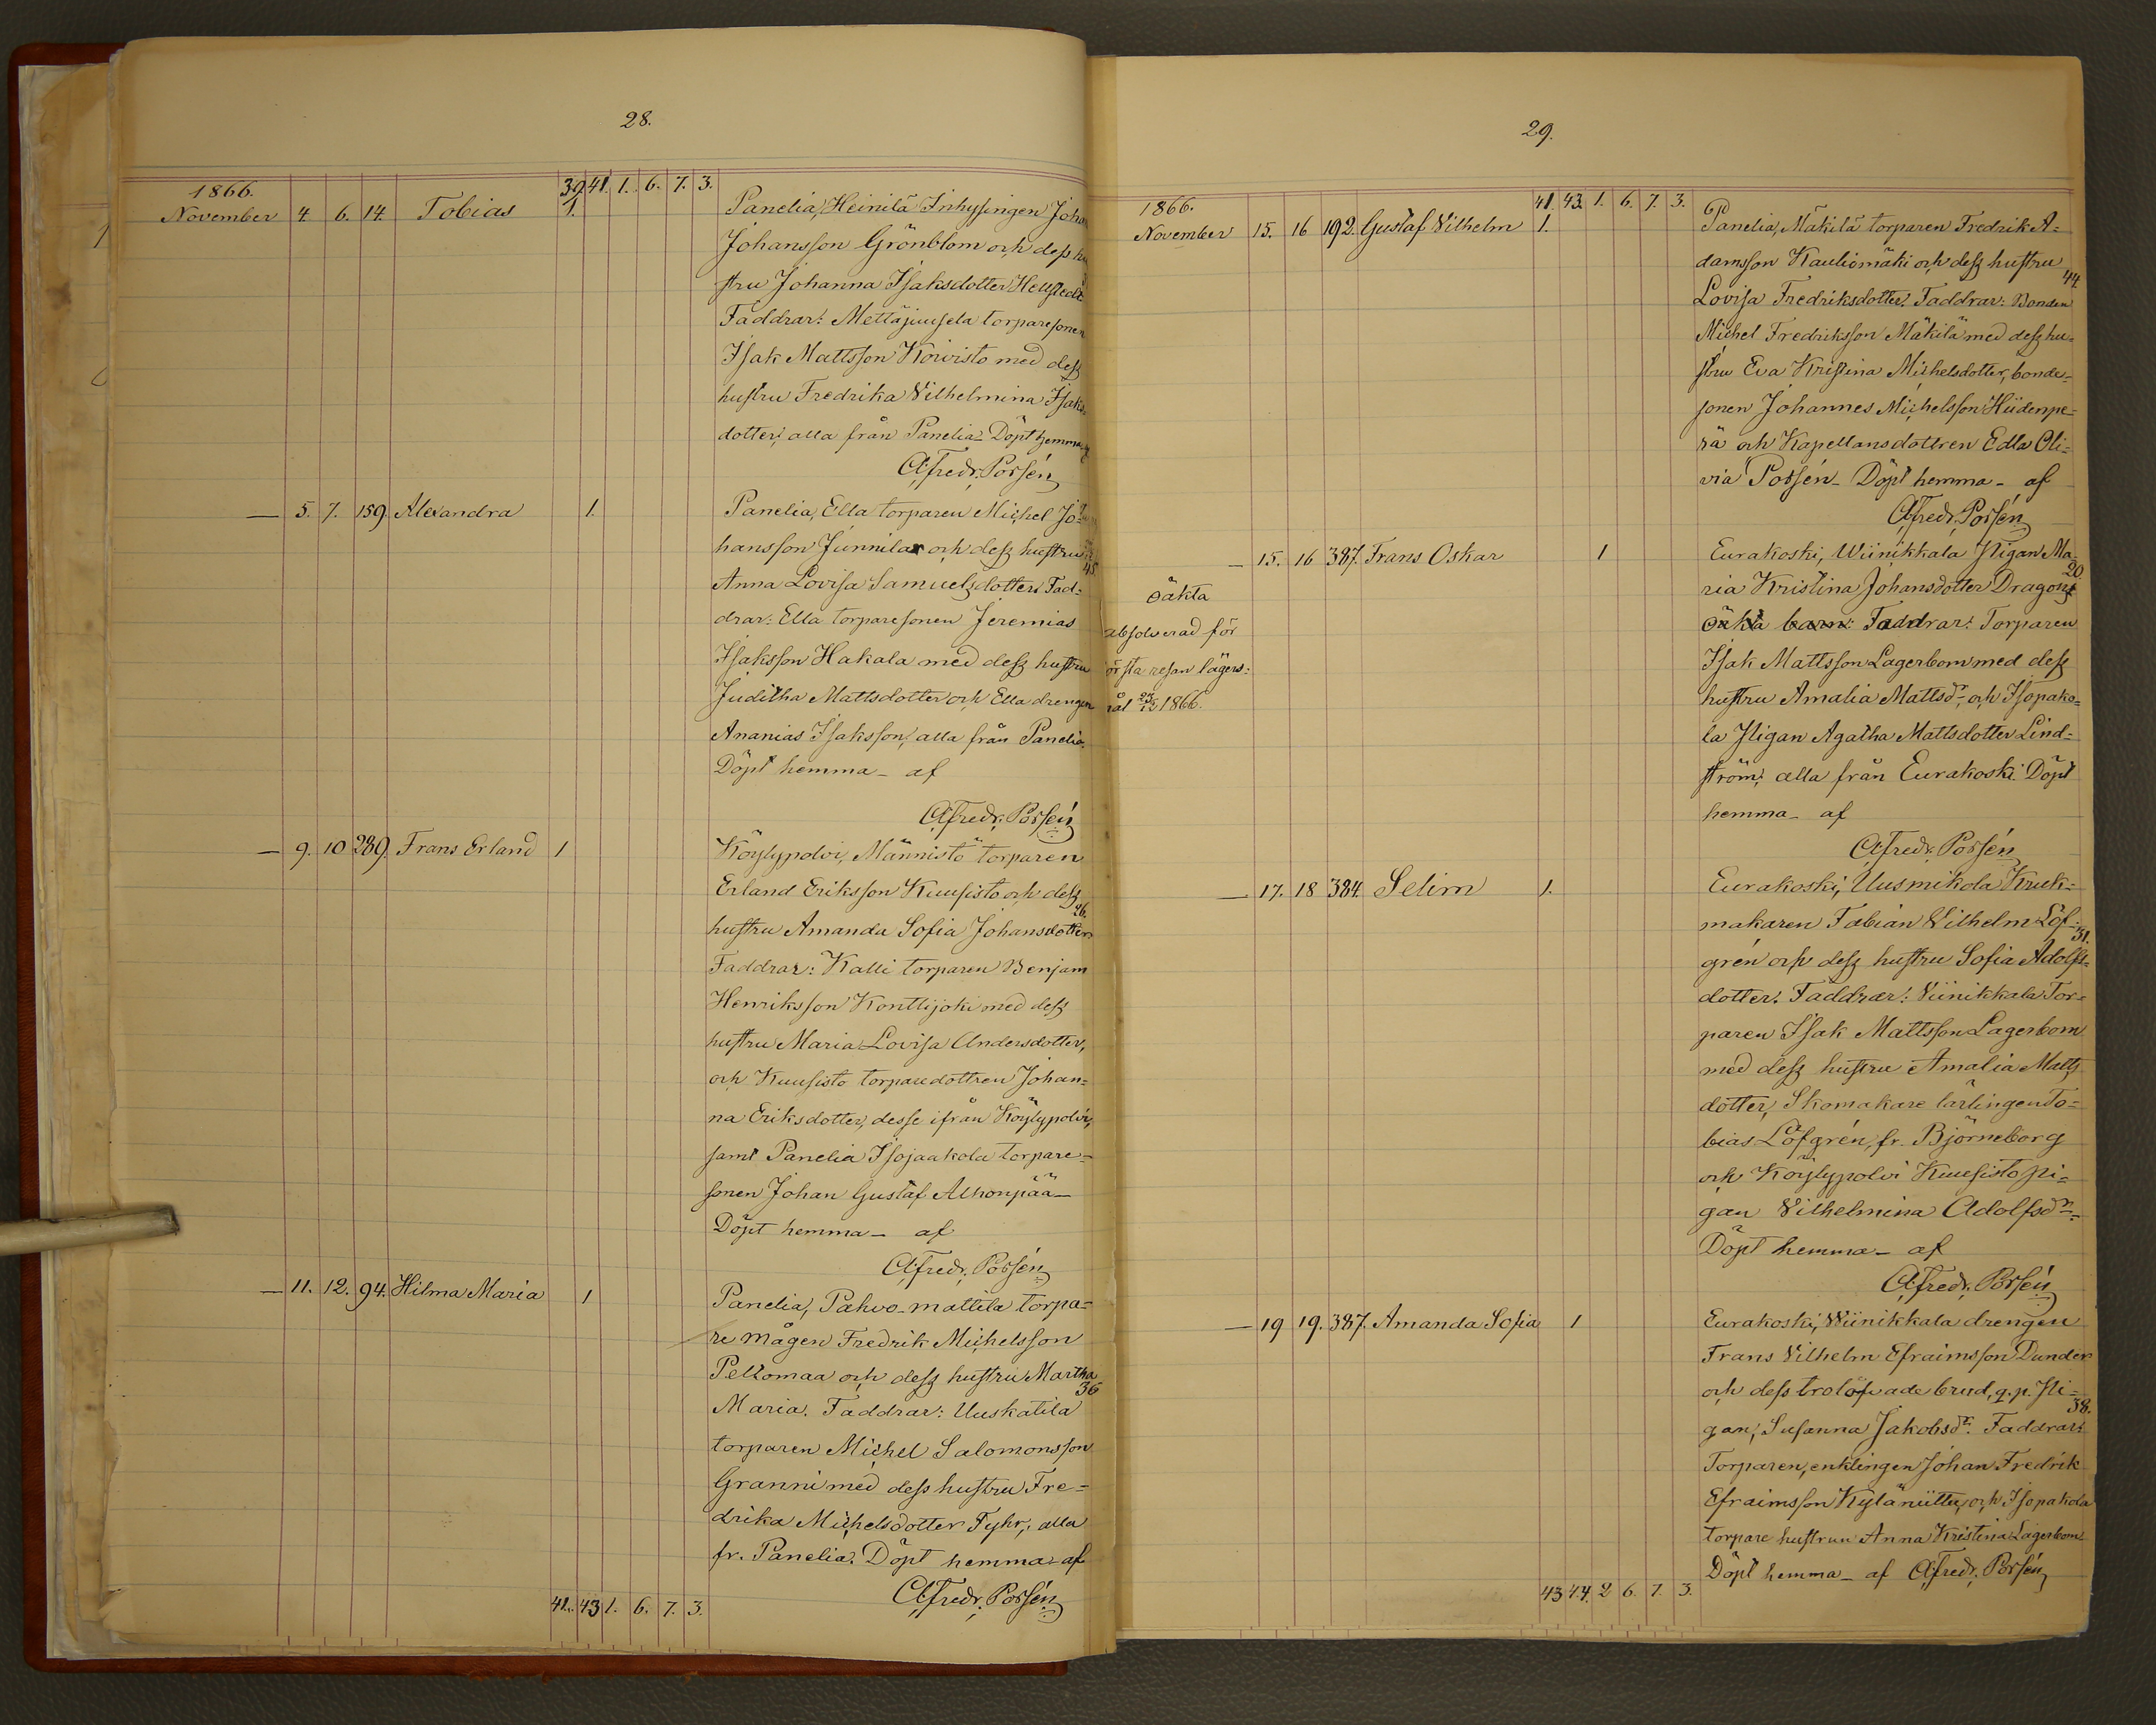 28.
1866.
39. 41. 1. 6. 7. 3.
November 4. 6. 14. Tobias 1.
Panelia, Heinilä Inhysingen Joha
Johansson Grönblom och dess hu
stru Johanna Isaksdotter Hellstedt
Faddrar: Mettäjuusela torparesonen
Isak Mattsson Koivisto med dess
hustru Fredrika Vilhelmina Isaks-
dotter, alla från Panelia. Döpt hemma
Afredr. Porsén
— 5. 7. 159. Alexandra 1.
Panelia, Ella torparen Michel Jo-
hansson Junnila och dess hustru
45.
Anna Lovisa Samuelsdotter. Fad-
drar: Ella torparesonen Jeremias
Isaksson Hakala med dess hustru
Juditha Mattsdotter och Ella drengen
Ananias Isaksson, alla från Panelia.
Döpt hemma – af
Afredr. Porsén
— 9. 10 289. Frans Erland 1
Köylypolvi, Männistö torparen
Erland Eriksson Kuusisto och dess
26.
hustru Amanda Sofia Johansdotter.
Faddrar: Kalli torparen Benjam
Henriksson Konttijoki med dess
hustru Maria Lovisa Andersdotter,
och Kuusisto torparedottren Johan-
na Eriksdotter, desse ifrån Köylypolvi,
samt Panelia Isojaakola torpare-
sonen Johan Gustaf Alhonpää –
Döpt hemma – af
Afredr. Porsén
— 11. 12. 94. Hilma Maria 1
Panelia, Pahvo-mattila torpa-
re mågen Fredrik Michelsson
Peltomaa och dess hustru Martha
36
Maria. Faddrar: Uuskatila
torparen Michel Salomonsson
Granni med dess hustru Fre-
drika Michelsdotter Fyhr, alla
fr. Panelia. Döpt hemma af
Afredr. Porsén
41. 43 1. 6. 7. 3.
29.
1866.
41. 43. 1. 6. 7. 3.
November 15. 16 192. Gustaf Vilhelm 1.
Panelia, Mäkilä torparen Fredrik A-
damsson Kauliomäki och dess hustru
44.
Lovisa Fredriksdotter. Faddrar: Bonden
Michel Fredriksson Mäkilä med dess hu-
stru Eva Kristina Michelsdotter, bonde-
sonen Johannes Michelsson Hiidenpe-
rä och Kapellansdottren Edla Oli-
via Porsén – Döpt hemma – af
Afredr. Porsén
— 15. 16 387. Frans Oskar 1
oäkta
absolverad för
örsta resan lägers-
mål 23/12 1866.
Eurakoski, Wiinikkala Pigan Ma-
20.
ria Kristina Johansdotter Dragons
oäkta barn: Faddrar: Torparen
Isak Mattsson Lagerbom med dess
hustru Amalia Mattsdr. och Isopako-
la Pigan Agatha Mattsdotter Lind-
ström, alla från Eurakoski. Döpt
hemma – af
Afredr. Porsén
— 17. 18 384. Selim 1.
Eurakoski, Uusmikola Kruk-
makaren Fabian Vilhelm Löf-
31.
grén och dess hustru Sofia Adolfs-
dotter. Faddrar: Viinikkala Tor-
paren Isak Mattsson Lagerbom
med dess hustru Amalia Matts
dotter, Skomakare lärlingen To-
bias Löfgrén, fr. Björneborg
och Köylypolvi Kuusisto pi-
gan Vilhelmina Adolfsdr.
Döpt hemma – af
Afredr. Porsén
— 19 19. 387. Amanda Sofia 1
Eurakoski, Wiinikkala drengen
Frans Vilhelm Efraimsson Dunder
och dess trolofvade brud, q.p. Pi-
38.
gan, Susanna Jakobsdr. Faddrar:
Torparen, enklingen Johan Fredrik
Efraimsson Kylänüttu, och Isopakola
torpare hustrun Anna Kristina Lagerbom
Döpt hemma – af Afredr. Porsén
43 44. 2 6. 7. 3.